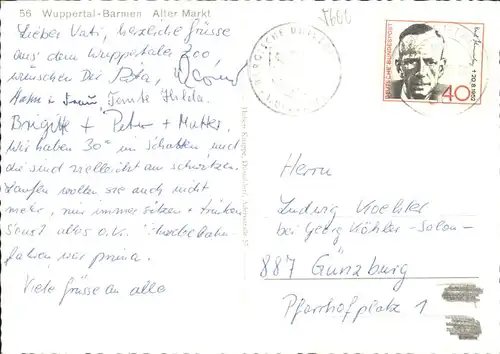 56 Wuppertal-Barmen Alter Markt
Lieber Vati, herzliche Grüsse
aus dem Wuppertaler Zoo,
wünschen Dir Rita,
Hans + Frau, Tante Hilda.
Brigitte + Peter + Mutter.
Wir haben 30° im Schatten und
die sind vielleicht am schwitzen.
Laufen wollen sie auch nicht
mehr, nur immer sitzen + trinken
Sonst alles o.k. Schwebebahn-
fahren war prima.
Viele Grüsse an alle
DEUTSCHE BUNDESPOST
40
Herrn
Ludwig Koehler
bei Georg Köhler -Salon-
887 Günzburg
Pfarrhofplatz 1